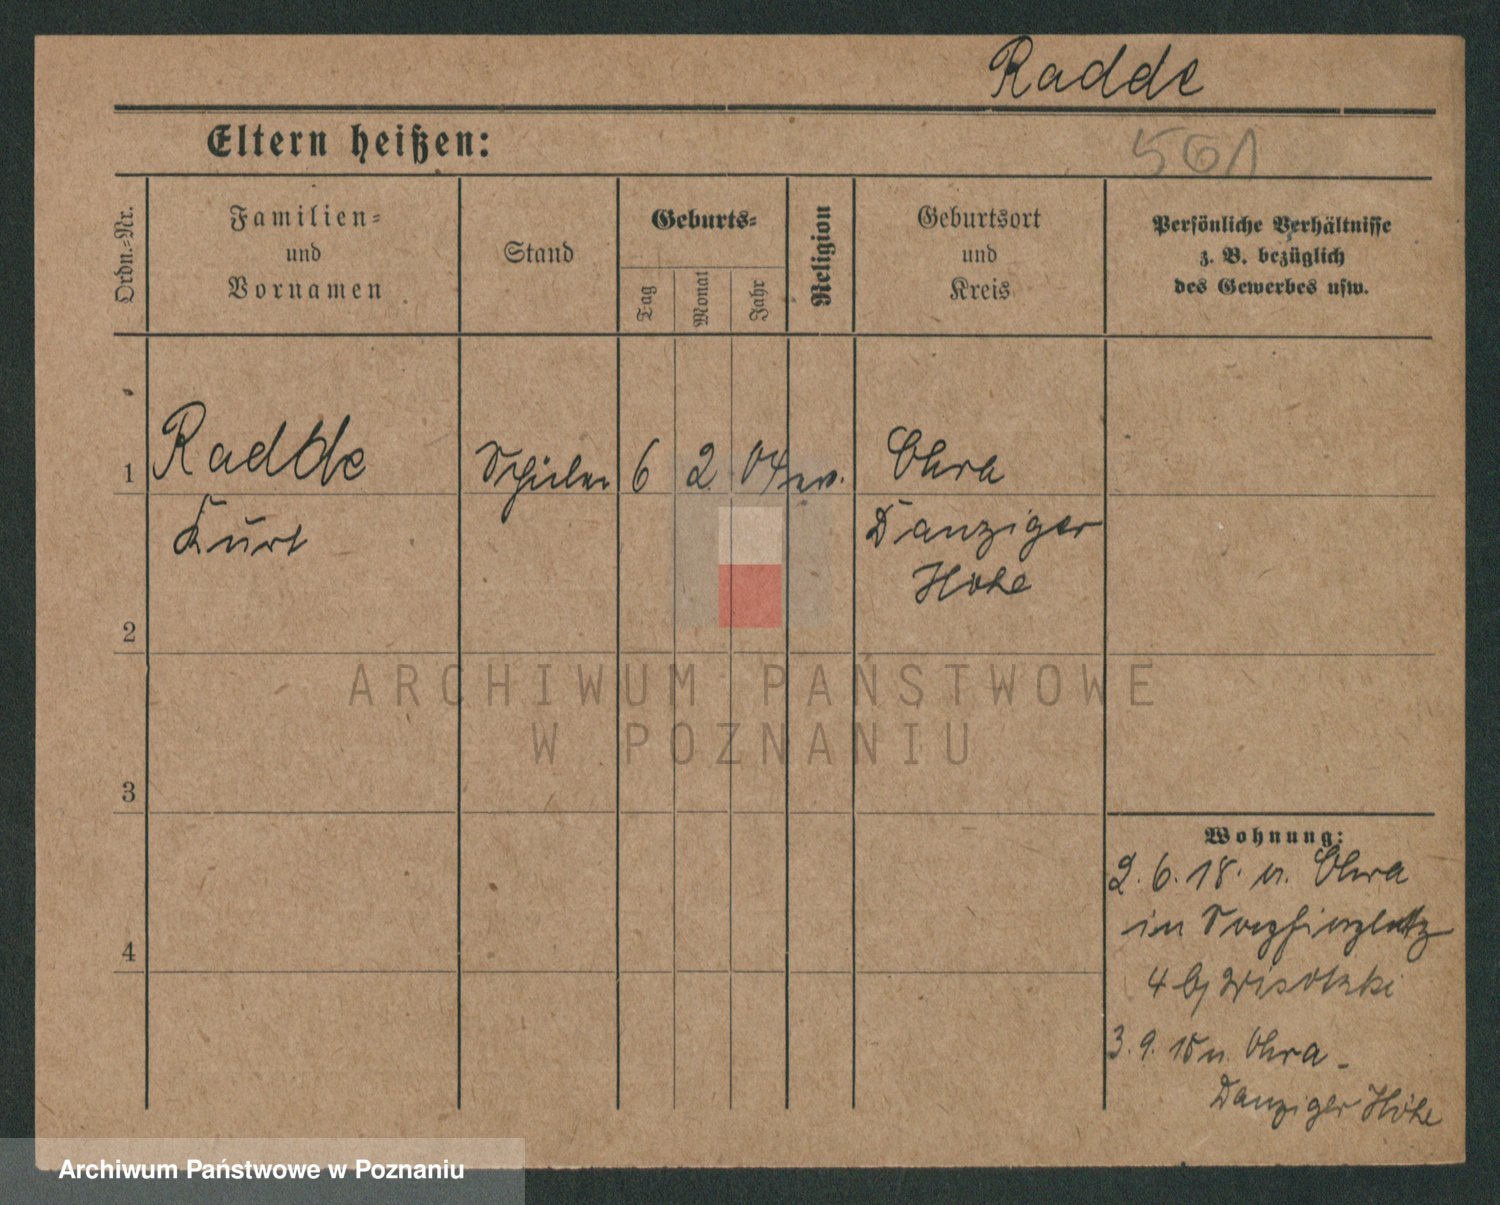 Radde
Eltern heißen:
561
Ordn.-Nr.
Familien-
und
Vornamen
Stand
Geburts-
Tag
Monat
Jahr
Religion
Geburtsort
und
Kreis
Persönliche Verhältnisse
z. B. bezüglich
des Gewerbes usw.
1 Radde Schüler 6 2 04 ev. Ohra
Kurt Danziger
Höhe
2
ARCHIWUM PAŃSTWOWE
W POZNANIU
3
Wohnung:
2. 6. 18. n. Ohra
in
4
4 b/ Wisotzki
3. 9. 18 n. Ohra -
Danziger Höhe
Archiwum Państwowe w Poznaniu